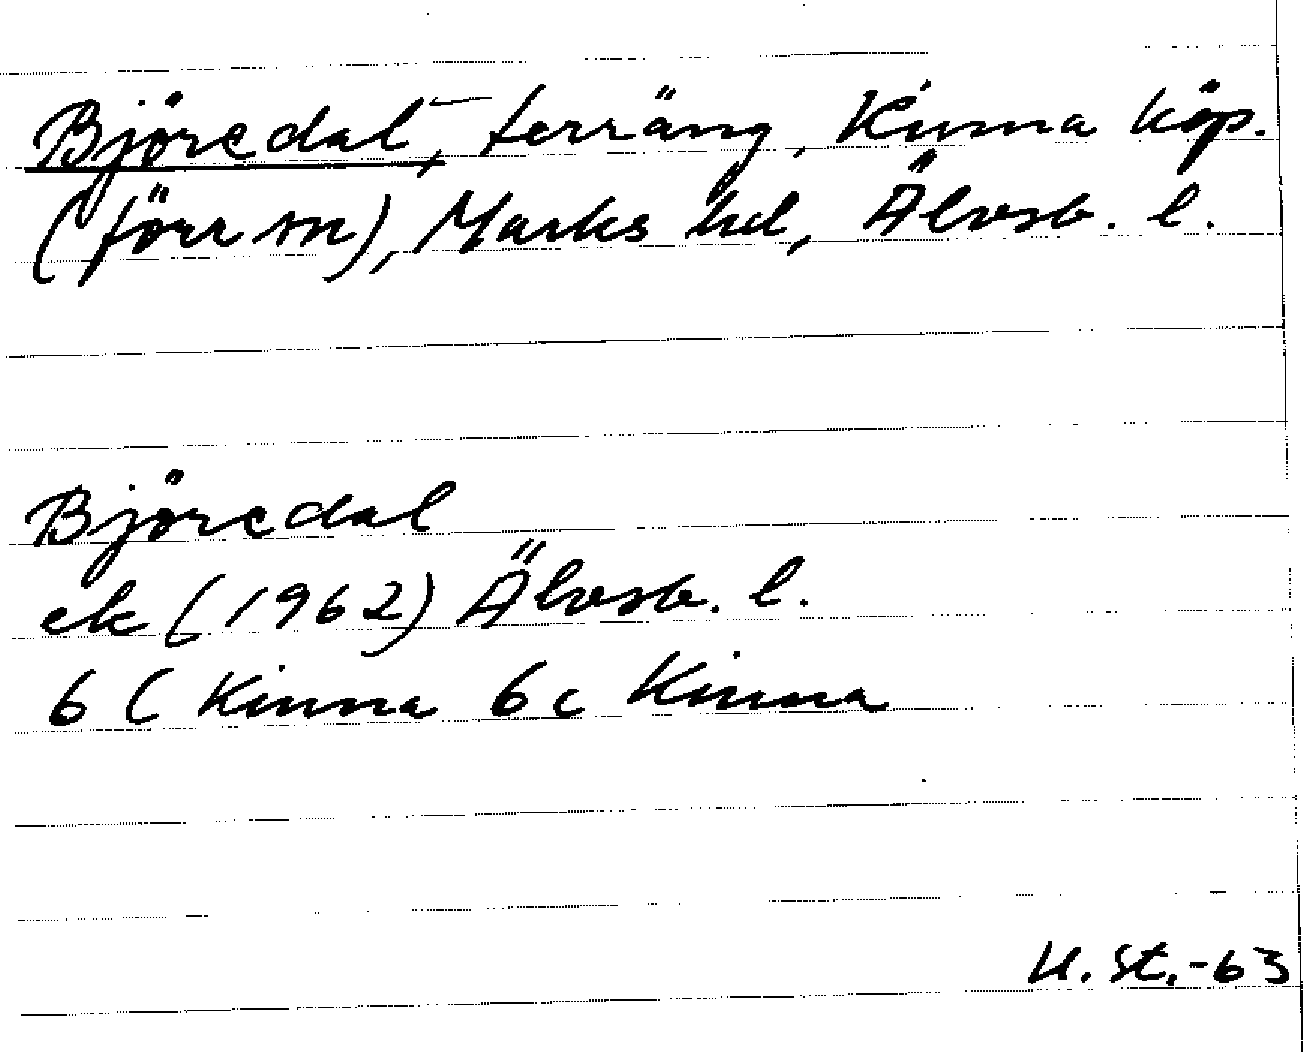 Björedal, terräng, Kinna köp.
(förr sn), Marks hd, Älvsb. l.
Björedal
ek (1962) Älvsb. l.
6 C Kinna 6c Kinna
U. St. -63